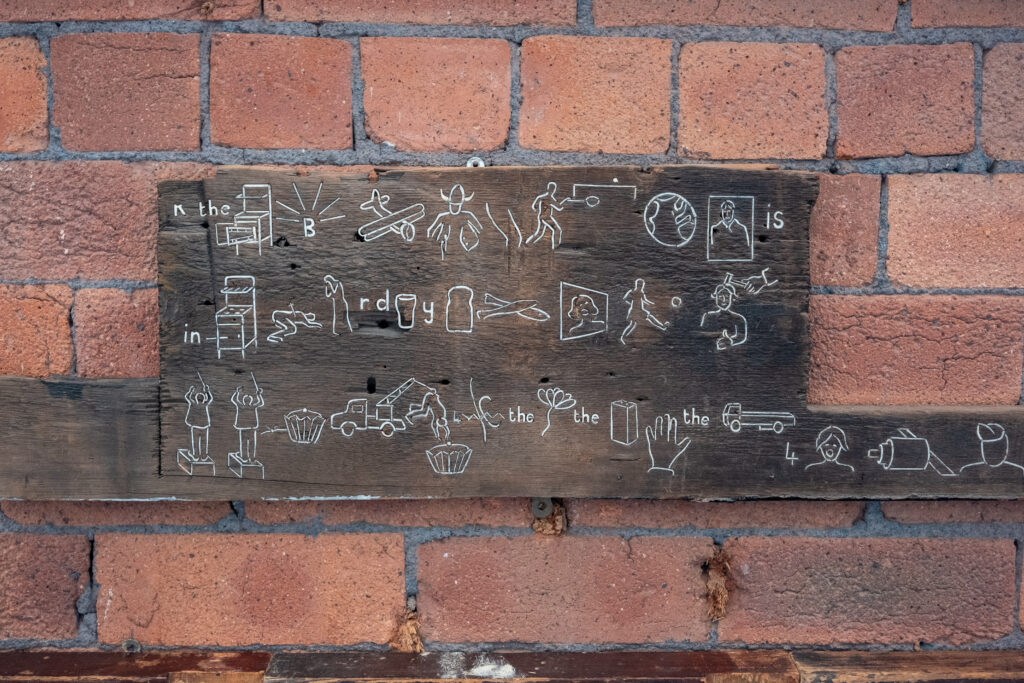 the B is
in rd y
the the the
4